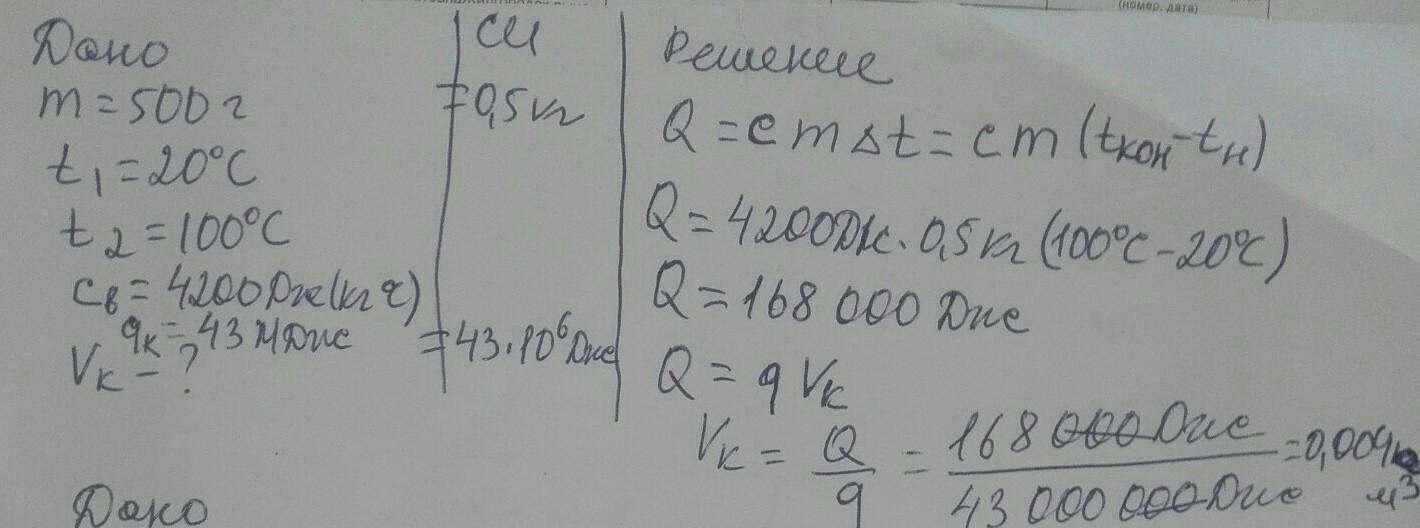 (номер, дата)
Дано
m = 500 г
t₁ = 20°C
t₂ = 100°C
cв = 4200 Дж(кг°C)
qк = 43 МДж
Vк – ?
СИ
= 0,5 кг
= 43·10⁶ Дж
Решение
Q = c m Δt = cm (tкон - tн)
Q = 4200 Дж · 0,5 кг (100°C - 20°C)
Q = 168 000 Дж
Q = q Vк
Vк = Q/q = 168 000 Дж / 43 000 000 Дж = 0,004
м³
Дано